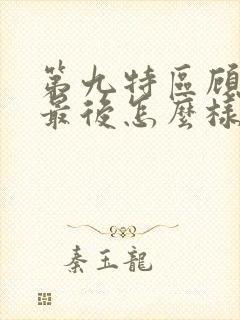 第九特區顾
最後怎麼樣
秦玉龍